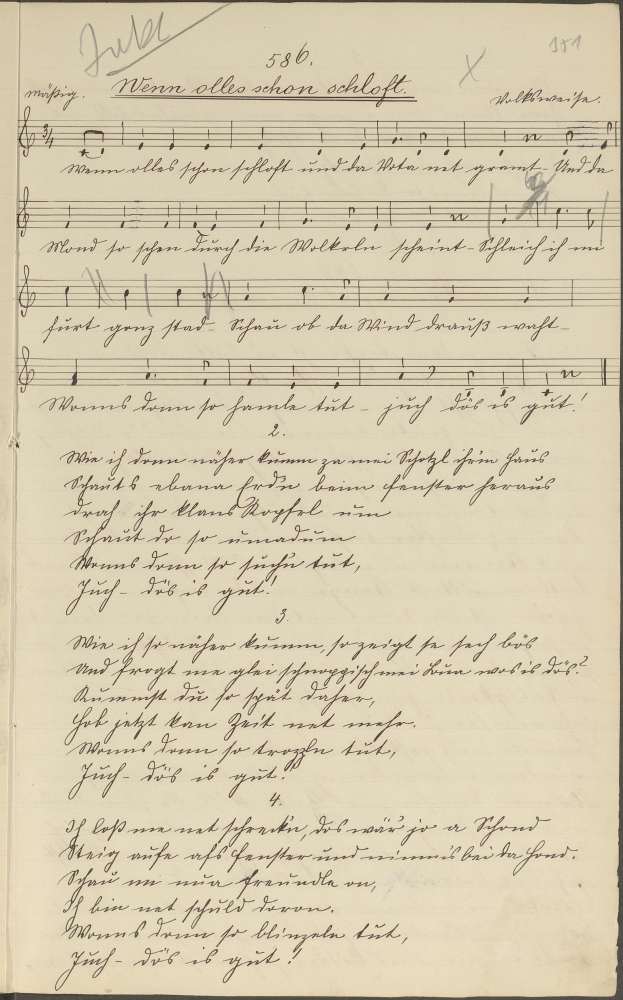 586.
351
Wenn olles schon schloft.
mäßig.
Volksweise.
Wenn olles schon schloft und da Vota net gramt - Und da
Mond so schen durch die Wolkerln scheint - Schleich ih mi
furt gonz stad - Schau ob da Wind drauß waht -
Wonns donn so hamle tut - juch dös is gut!
2.
Wie ih donn näher kumm za mei Schotzl ihrm Haus
Schauts ebana Erd'n beim Fenster heraus
draht ihr klans Kopferl um
Schaut do so umadum
Wonns donn so suchn tut,
Juch - dös is gut!
3.
Wie ih so näher kumm, so zeigt se sech bös
Und frogt me glei schnoppisch mei Bua wos is dös?
Kummst du so spät daher,
Hob jetzt kan Zeit net mehr.
Wonns donn so trozzln tut,
Juch - dös is gut!
4.
Ih loß me net schreck'n, dos wär jo a Schond
Steig aufe afs Fenster und nimms bei da Hond.
Schau mi nua freundle on,
Ih bin net schuld doron.
Wonns donn so blinzeln tut,
Juch - dös is gut!